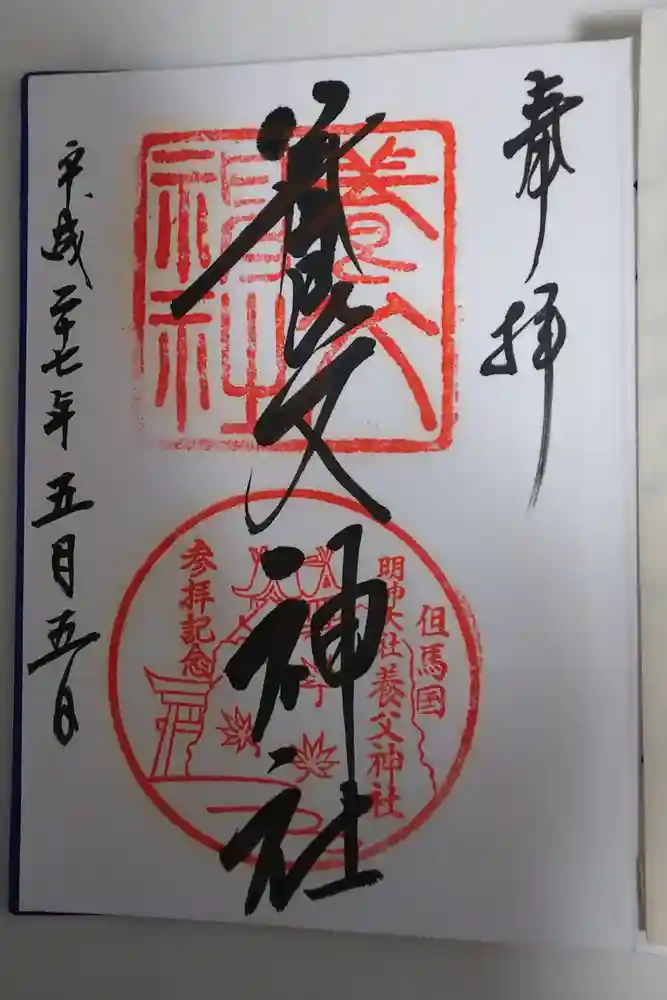 奉拝
養父神社
養父神社
但馬国
明神大社養父神社
参拝記念
平成二十七年五月五日